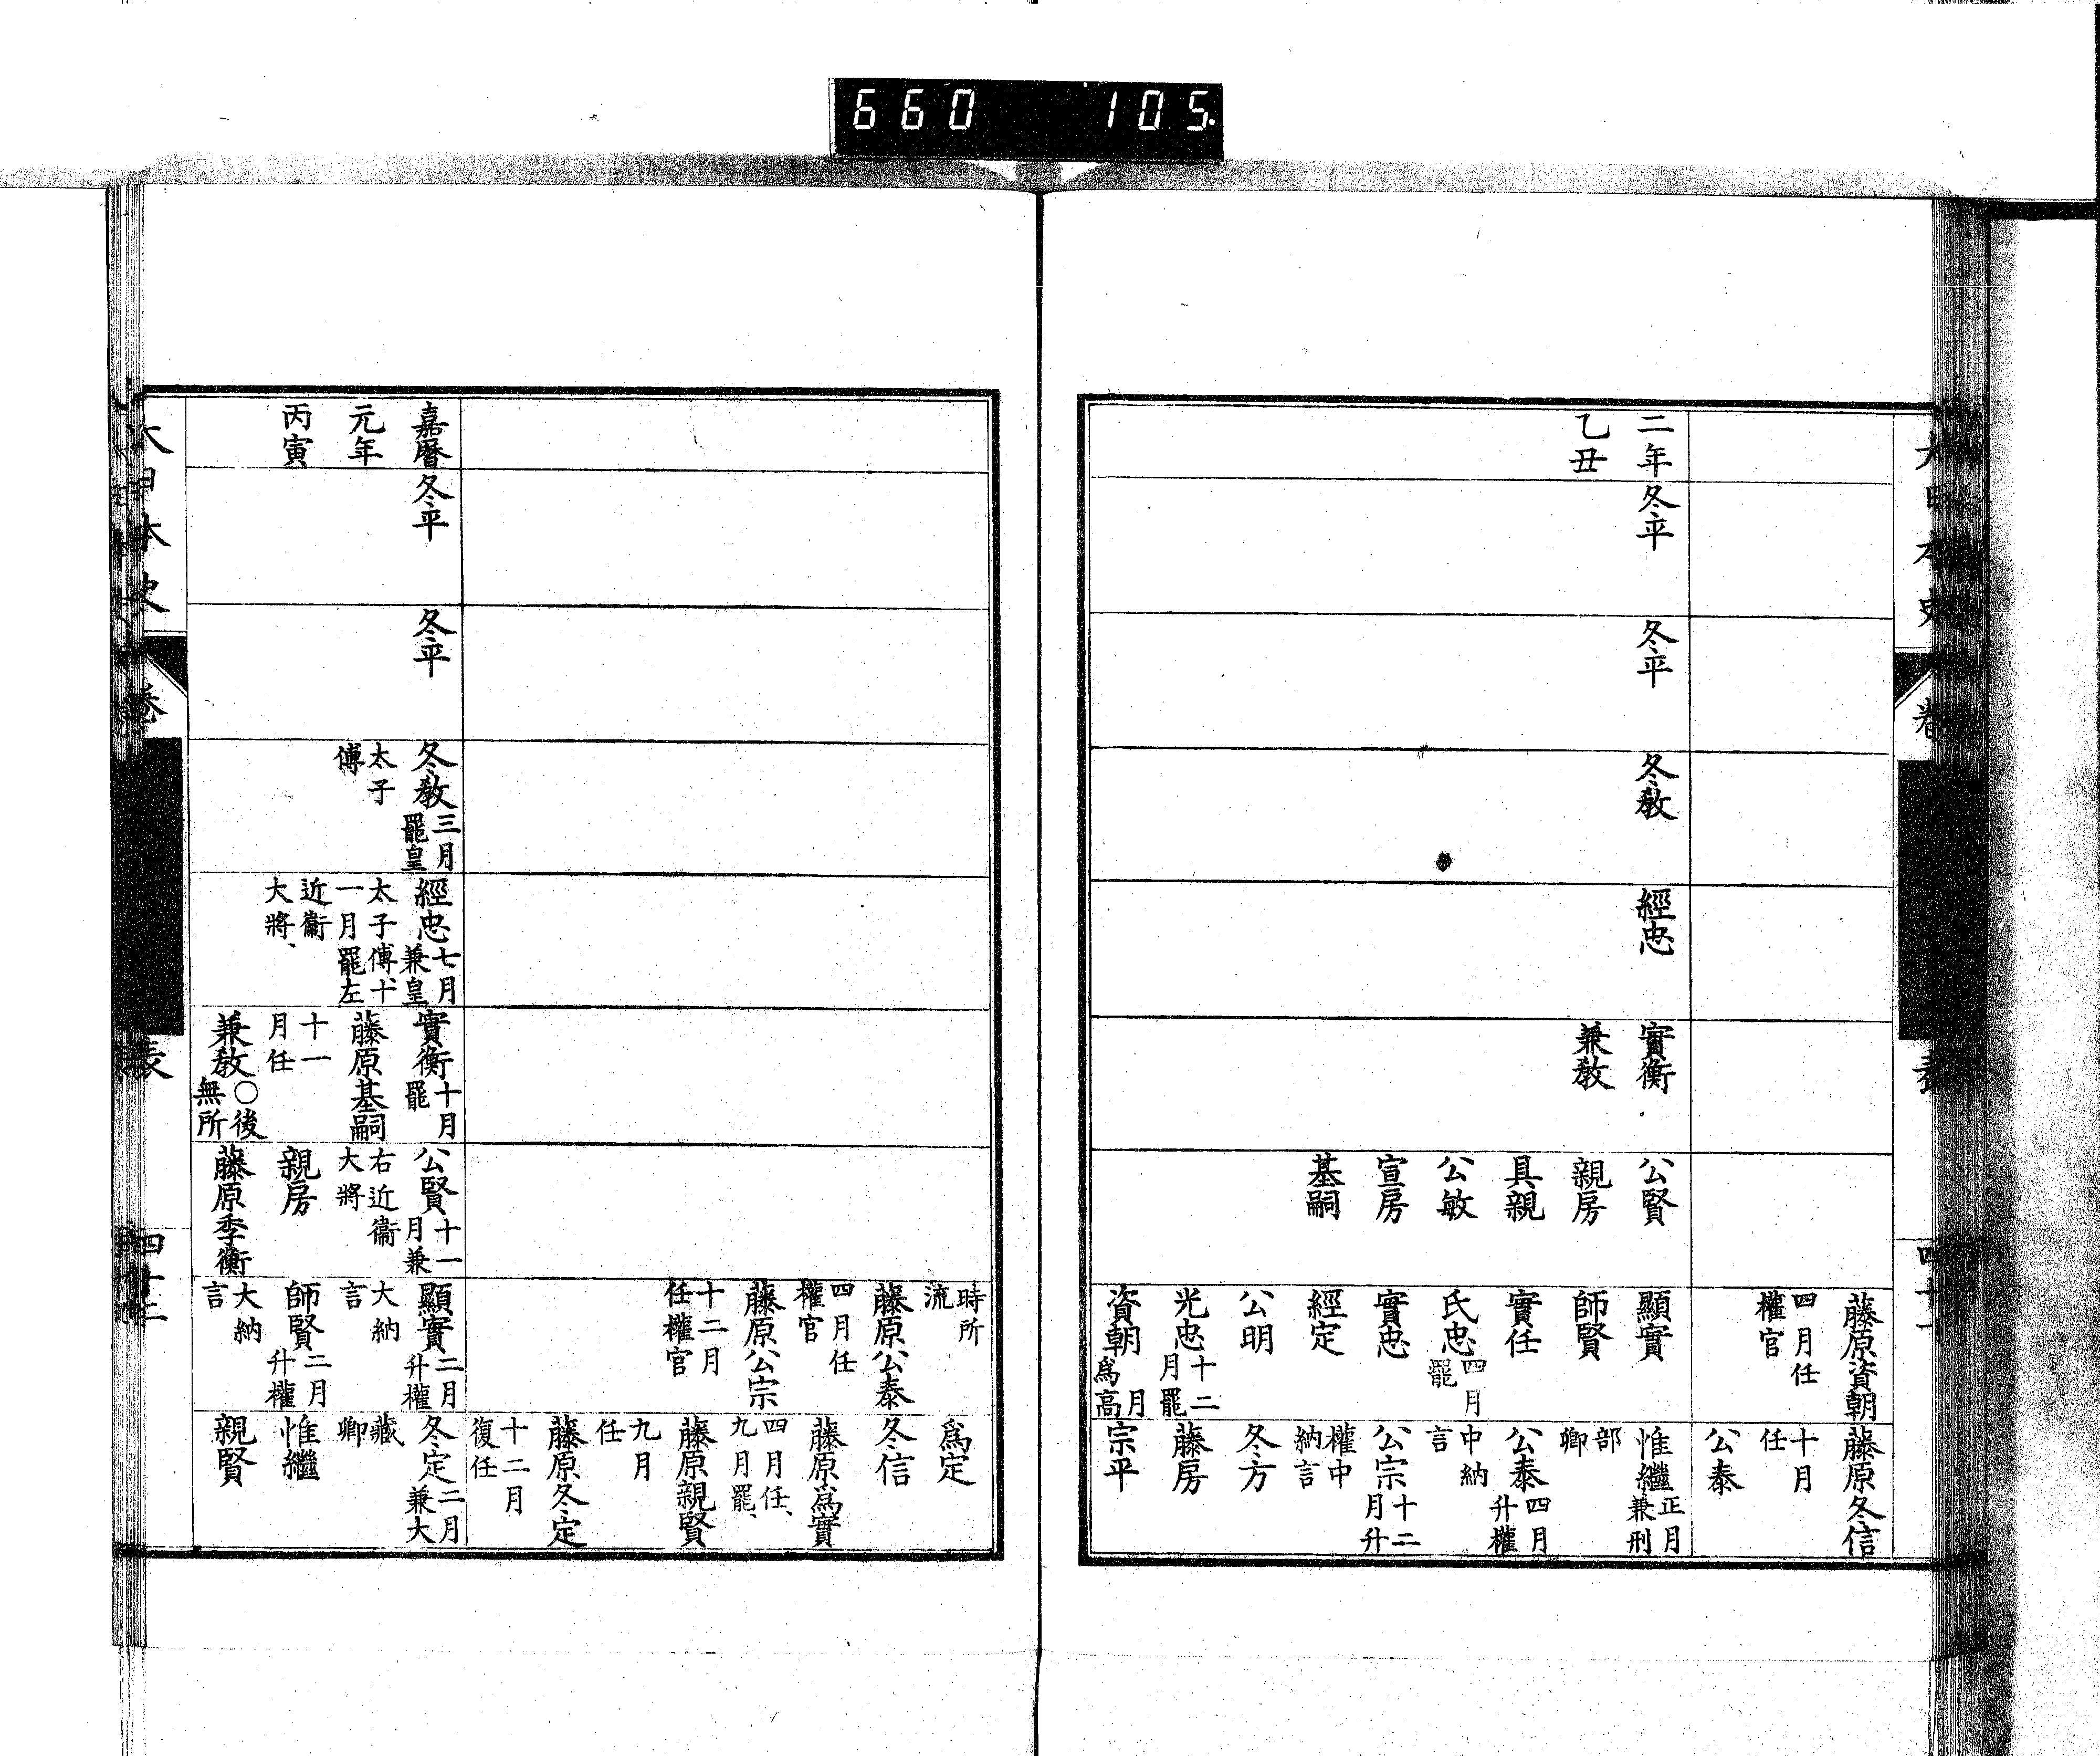 660 105
大日本史
卷
表
藤原資朝
四月任
權官
藤原冬信
十月
任
公泰
二年
乙丑
冬平
冬平
冬教
經忠
實衡
兼教
公賢
親房
具親
公敏
宣房
基嗣
顯實
師賢
實任
氏忠四月
罷
實忠
經定
公明
光忠十二
月罷
資朝月
爲高
惟繼正月
兼刑
部
卿
公泰四月
升權
中納
言
公宗十二
月升
權中
納言
冬方
藤房
宗平
時所
流
藤原公泰
四月任
權官
藤原公宗
十二月
任權官
爲定
冬信
藤原爲實
四月任、
九月罷、
藤原親賢
九月
任
藤原冬定
十二月
復任
嘉曆
元年
丙寅
冬平
冬平
冬教三月
罷皇
太子
傅
經忠七月
兼皇
太子傅、十
一月罷左
近衞
大將、
實衡十月
罷
藤原基嗣
十一
月任
兼教〇後
無所
公賢十一
月兼
右近衞
大將
親房
藤原季衡
顯實二月
升權
大納
言
師賢二月
升權
大納
言
冬定二月
兼大
藏
卿
惟繼
親賢
大日本史
卷
表
四十二